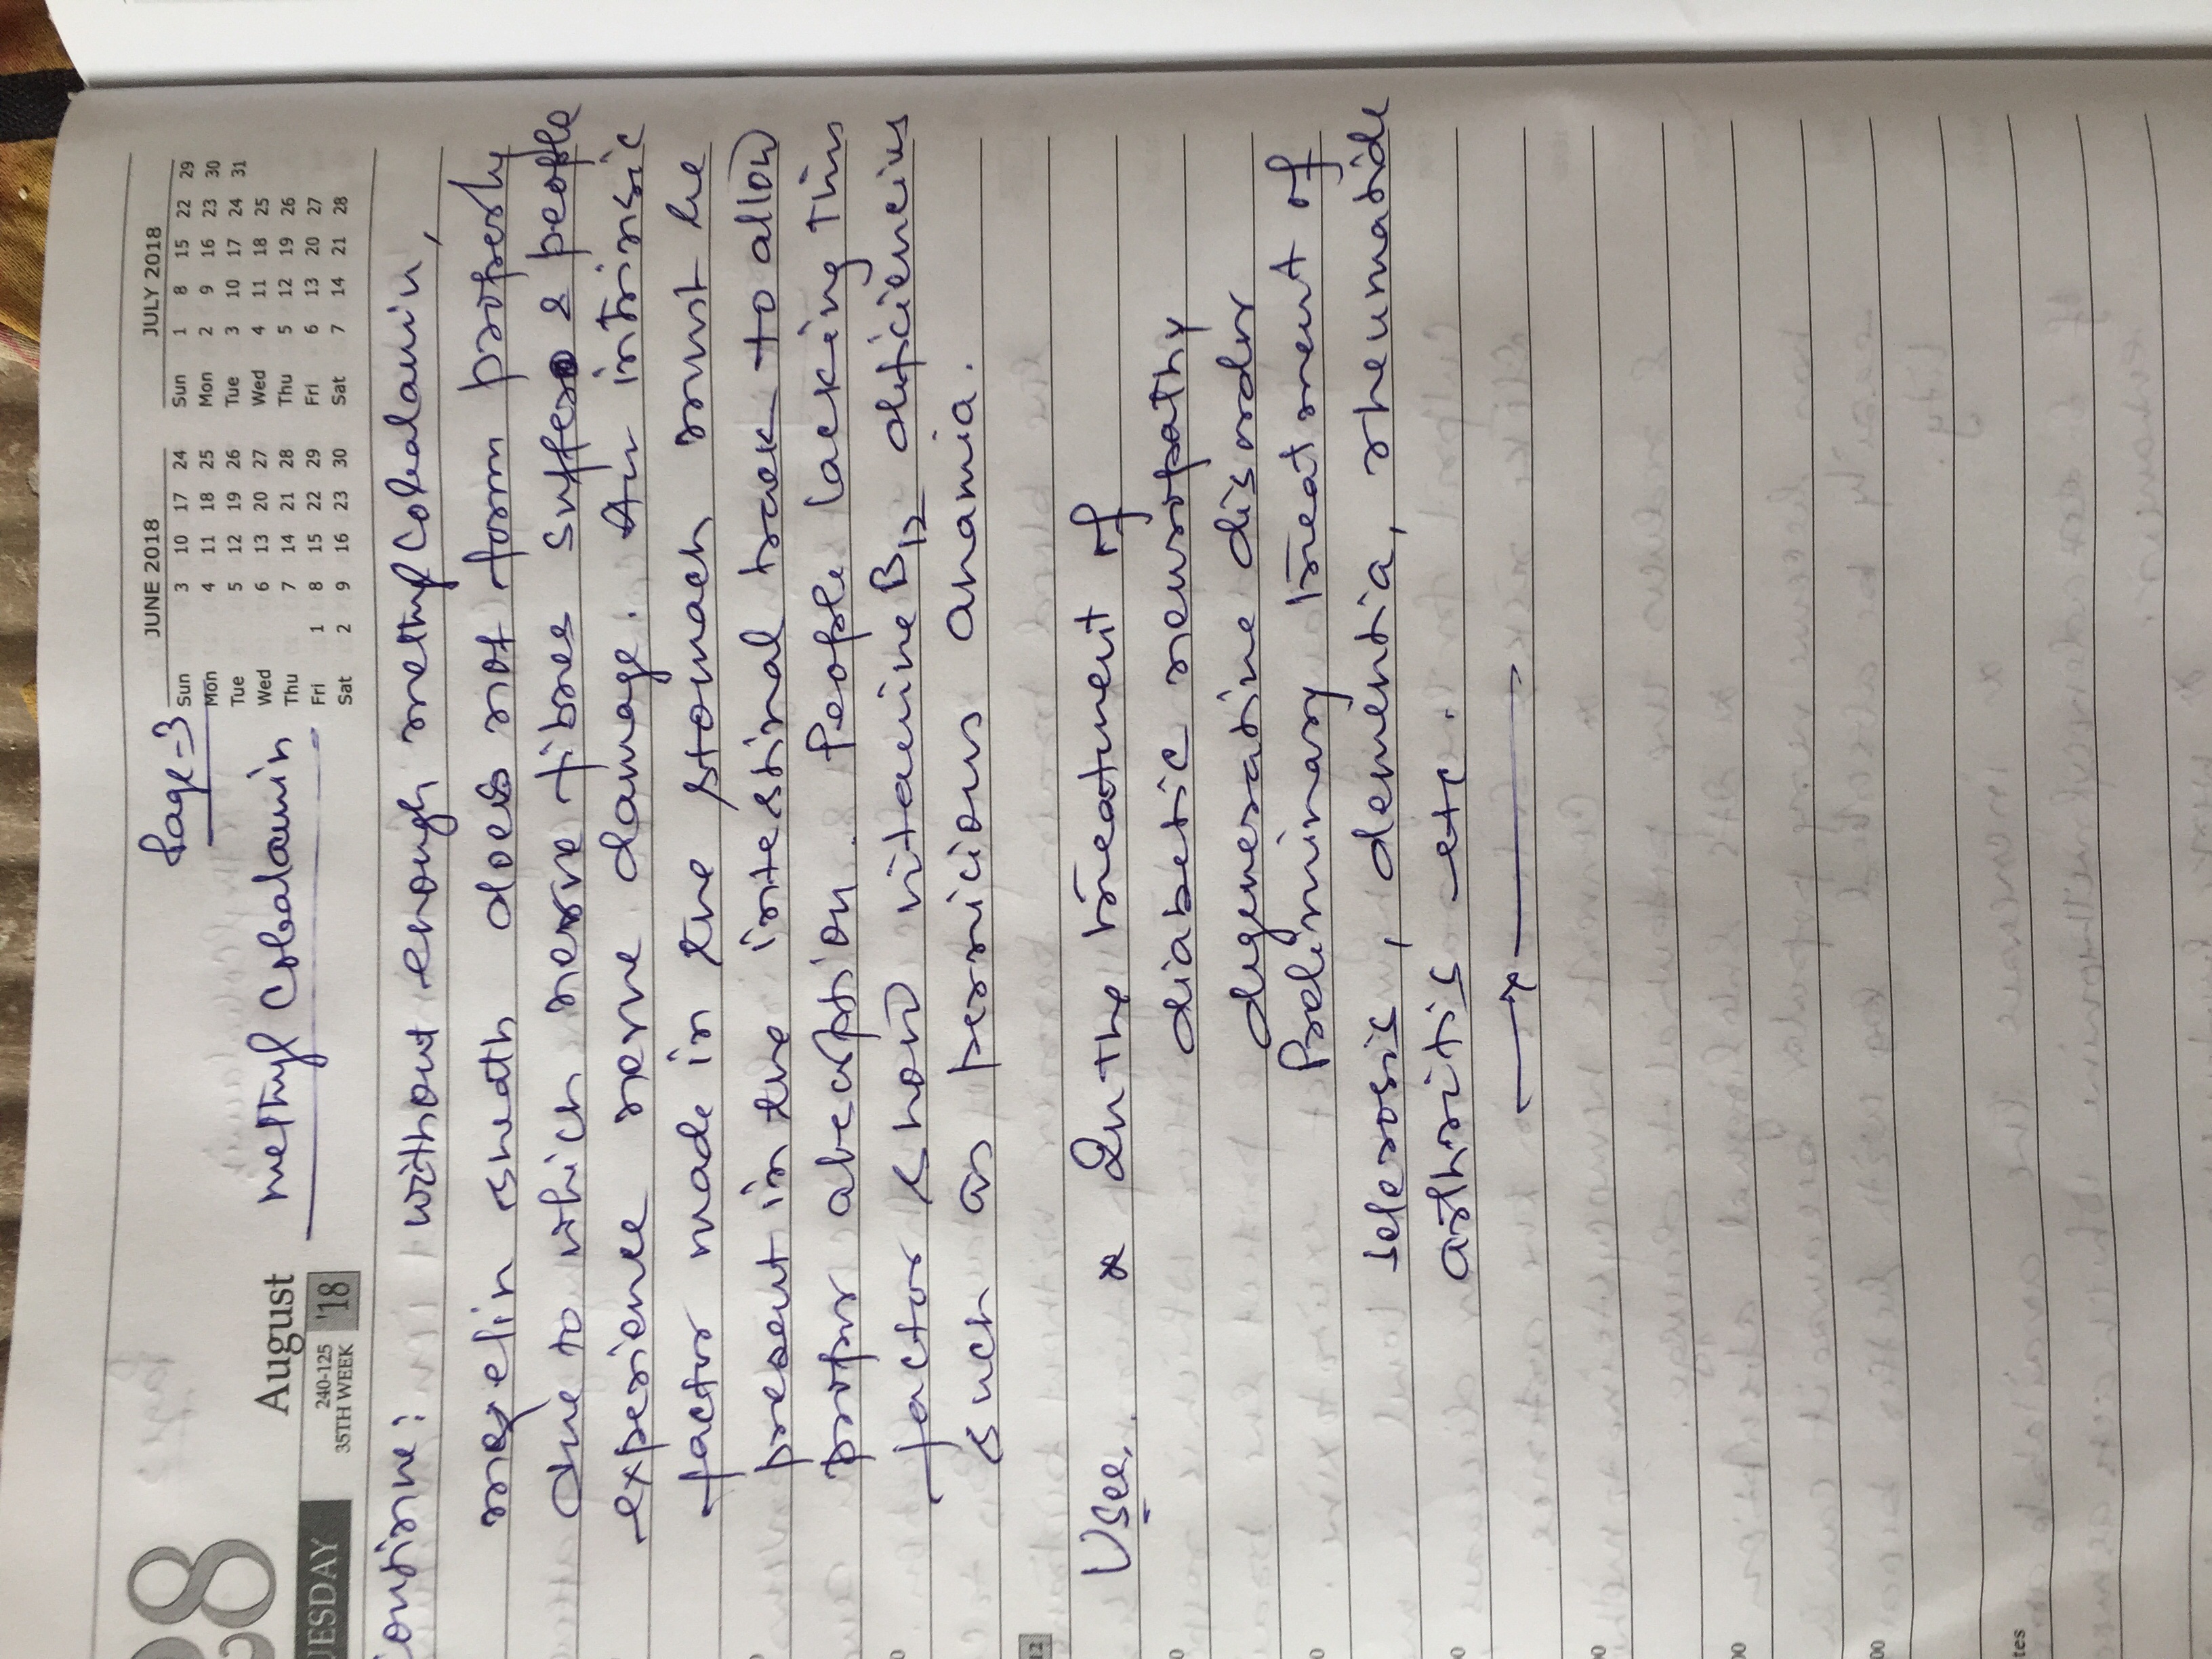 Page-3
28 August
TUESDAY 240-125 35TH WEEK '18
methyl Cobalamin
JUNE 2018
Sun 3 10 17 24
Mon 4 11 18 25
Tue 5 12 19 26
Wed 6 13 20 27
Thu 7 14 21 28
Fri 1 8 15 22 29
Sat 2 9 16 23 30
JULY 2018
Sun 1 8 15 22 29
Mon 2 9 16 23 30
Tue 3 10 17 24 31
Wed 4 11 18 25
Thu 5 12 19 26
Fri 6 13 20 27
Sat 7 14 21 28
Continue: without enough methyl Cobalamin,
myelin sheath does not form properly
due to which nerve fibres suffer & people
experience nerve damage. An intrinsic
factor made in the stomach must be
present in the intestinal track to allow
proper abcorption. People lacking this
factor show vitamine B12 deficiencies
such as pernicious anamia.
12
Uses. * In the treatment of
diabetic neuropathy
degenerative disorder
Preliminary treatment of
sclerosis, dementia, rheumatide
arthritis etc.
x
tes